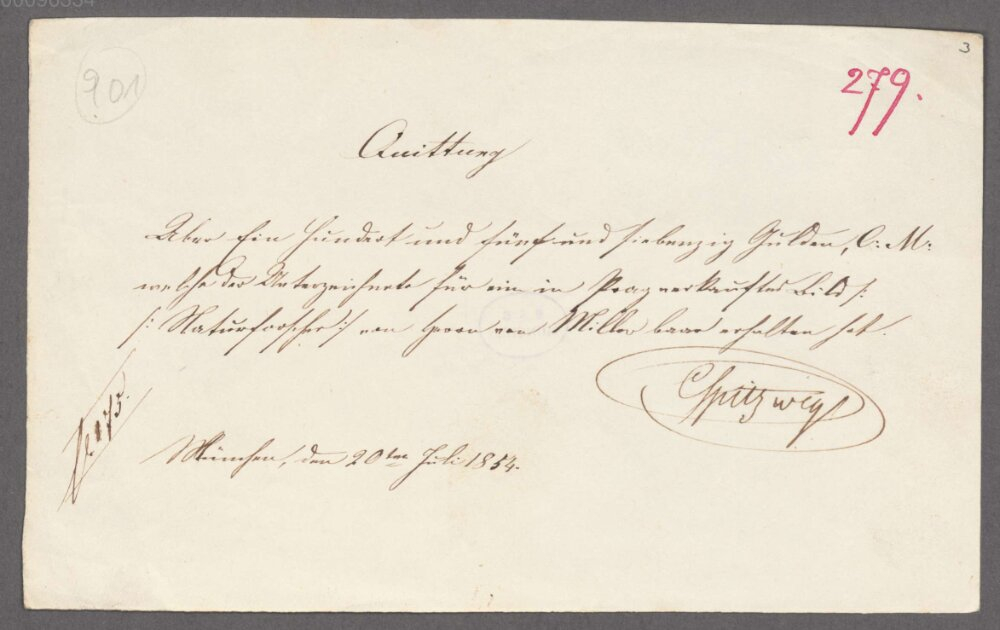 901
3
279.
Quittung
Über Ein Hundert und fünf und siebenzig Gulden, C: M:
welche der Unterzeichnete für ein in Prag verkauftes Bild /:
/: Naturforscher :/ von Herrn von Miller baar erhalten hat.
CSpitzweg
fl 175.
München, den 20ten Juli 1854.